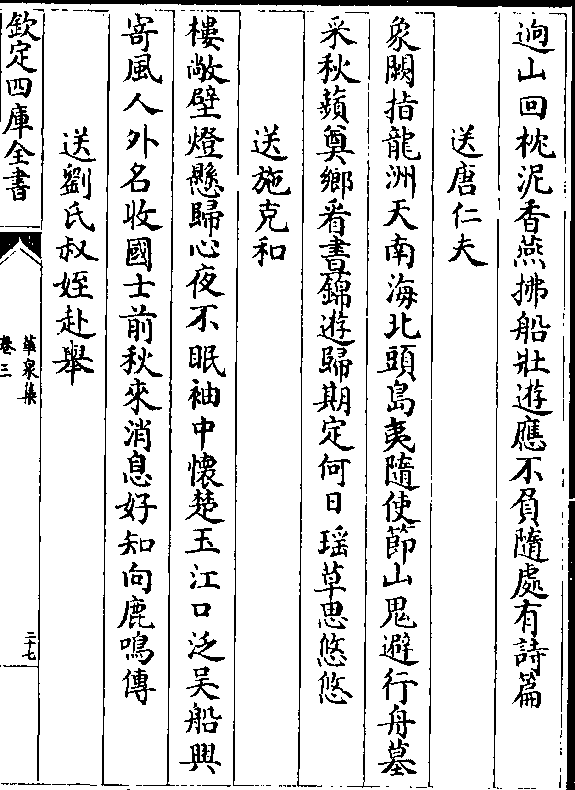 逈山回枕泥香燕拂船壯遊應不負隨處有詩篇
送唐仁夫
象闕指龍洲天南海北頭島夷隨使節山鬼避行舟墓
采秋蘋奠鄉看晝錦遊歸期定何日瑶草思悠悠
送施克和
樓敞壁燈懸歸心夜不眠袖中懷楚玉江口泛吴船興
寄風人外名收國士前秋來消息好知向鹿鳴傳
送劉氏叔姪赴舉
欽定四庫全書
華泉集
卷三
二十七